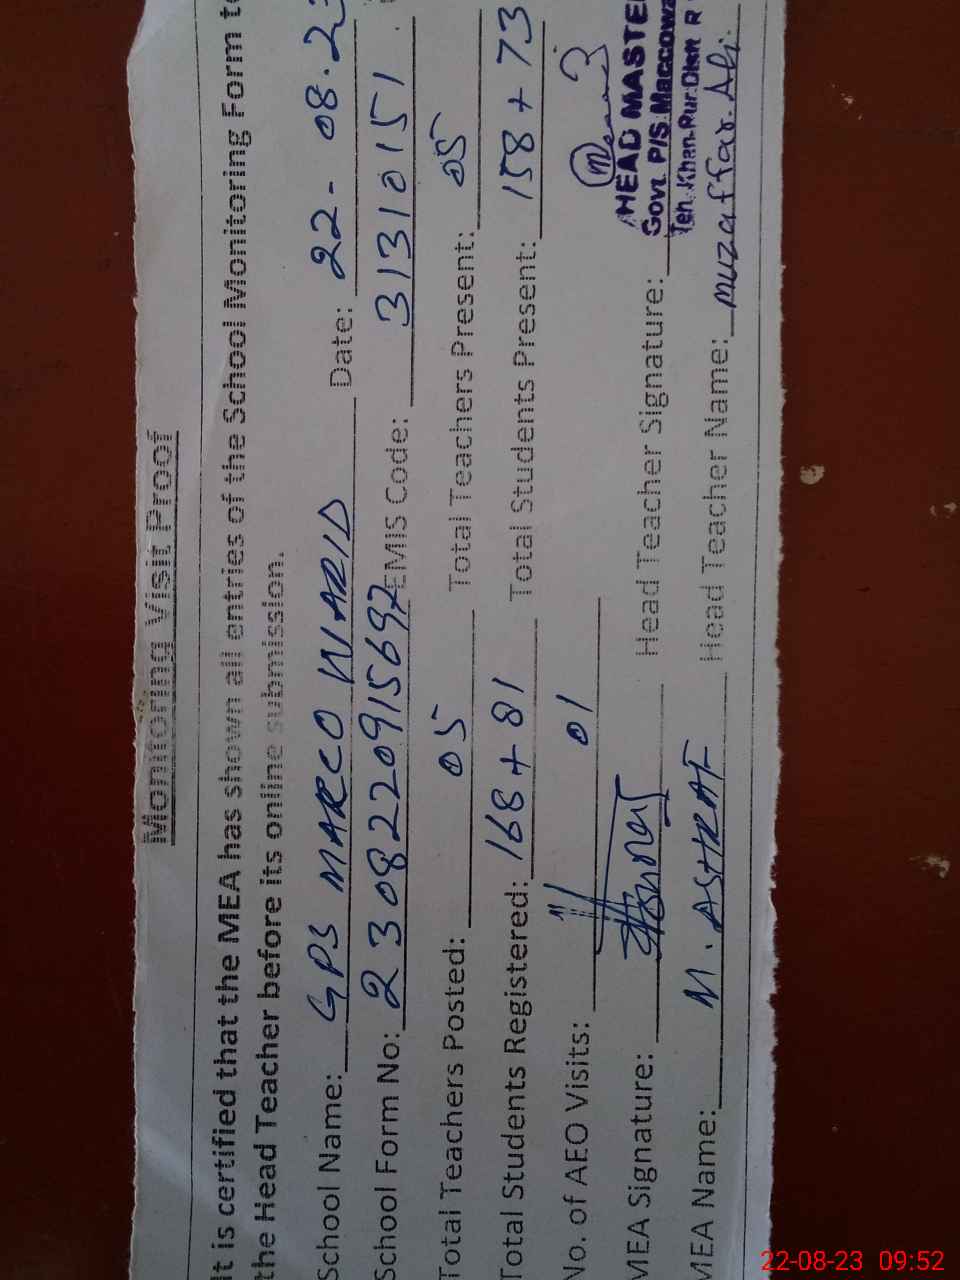 Monitoring Visit Proof
It is certified that the MEA has shown all entries of the School Monitoring Form to
the Head Teacher before its online submission.
School Name: GPS MARCO WARID Date: 22-08.23
School Form No: 2308220915692 EMIS Code: 31310151
Total Teachers Posted: 05 Total Teachers Present: 05
Total Students Registered: 168+81 Total Students Present: 158+73
No. of AEO Visits: 01
MEA Signature: Head Teacher Signature:
HEAD MASTER
Govt. P/S
Teh. Khan Pur Distt R
MEA Name: M. ASHRAF Head Teacher Name: muzaffar. Ali.
22-08-23 09:52